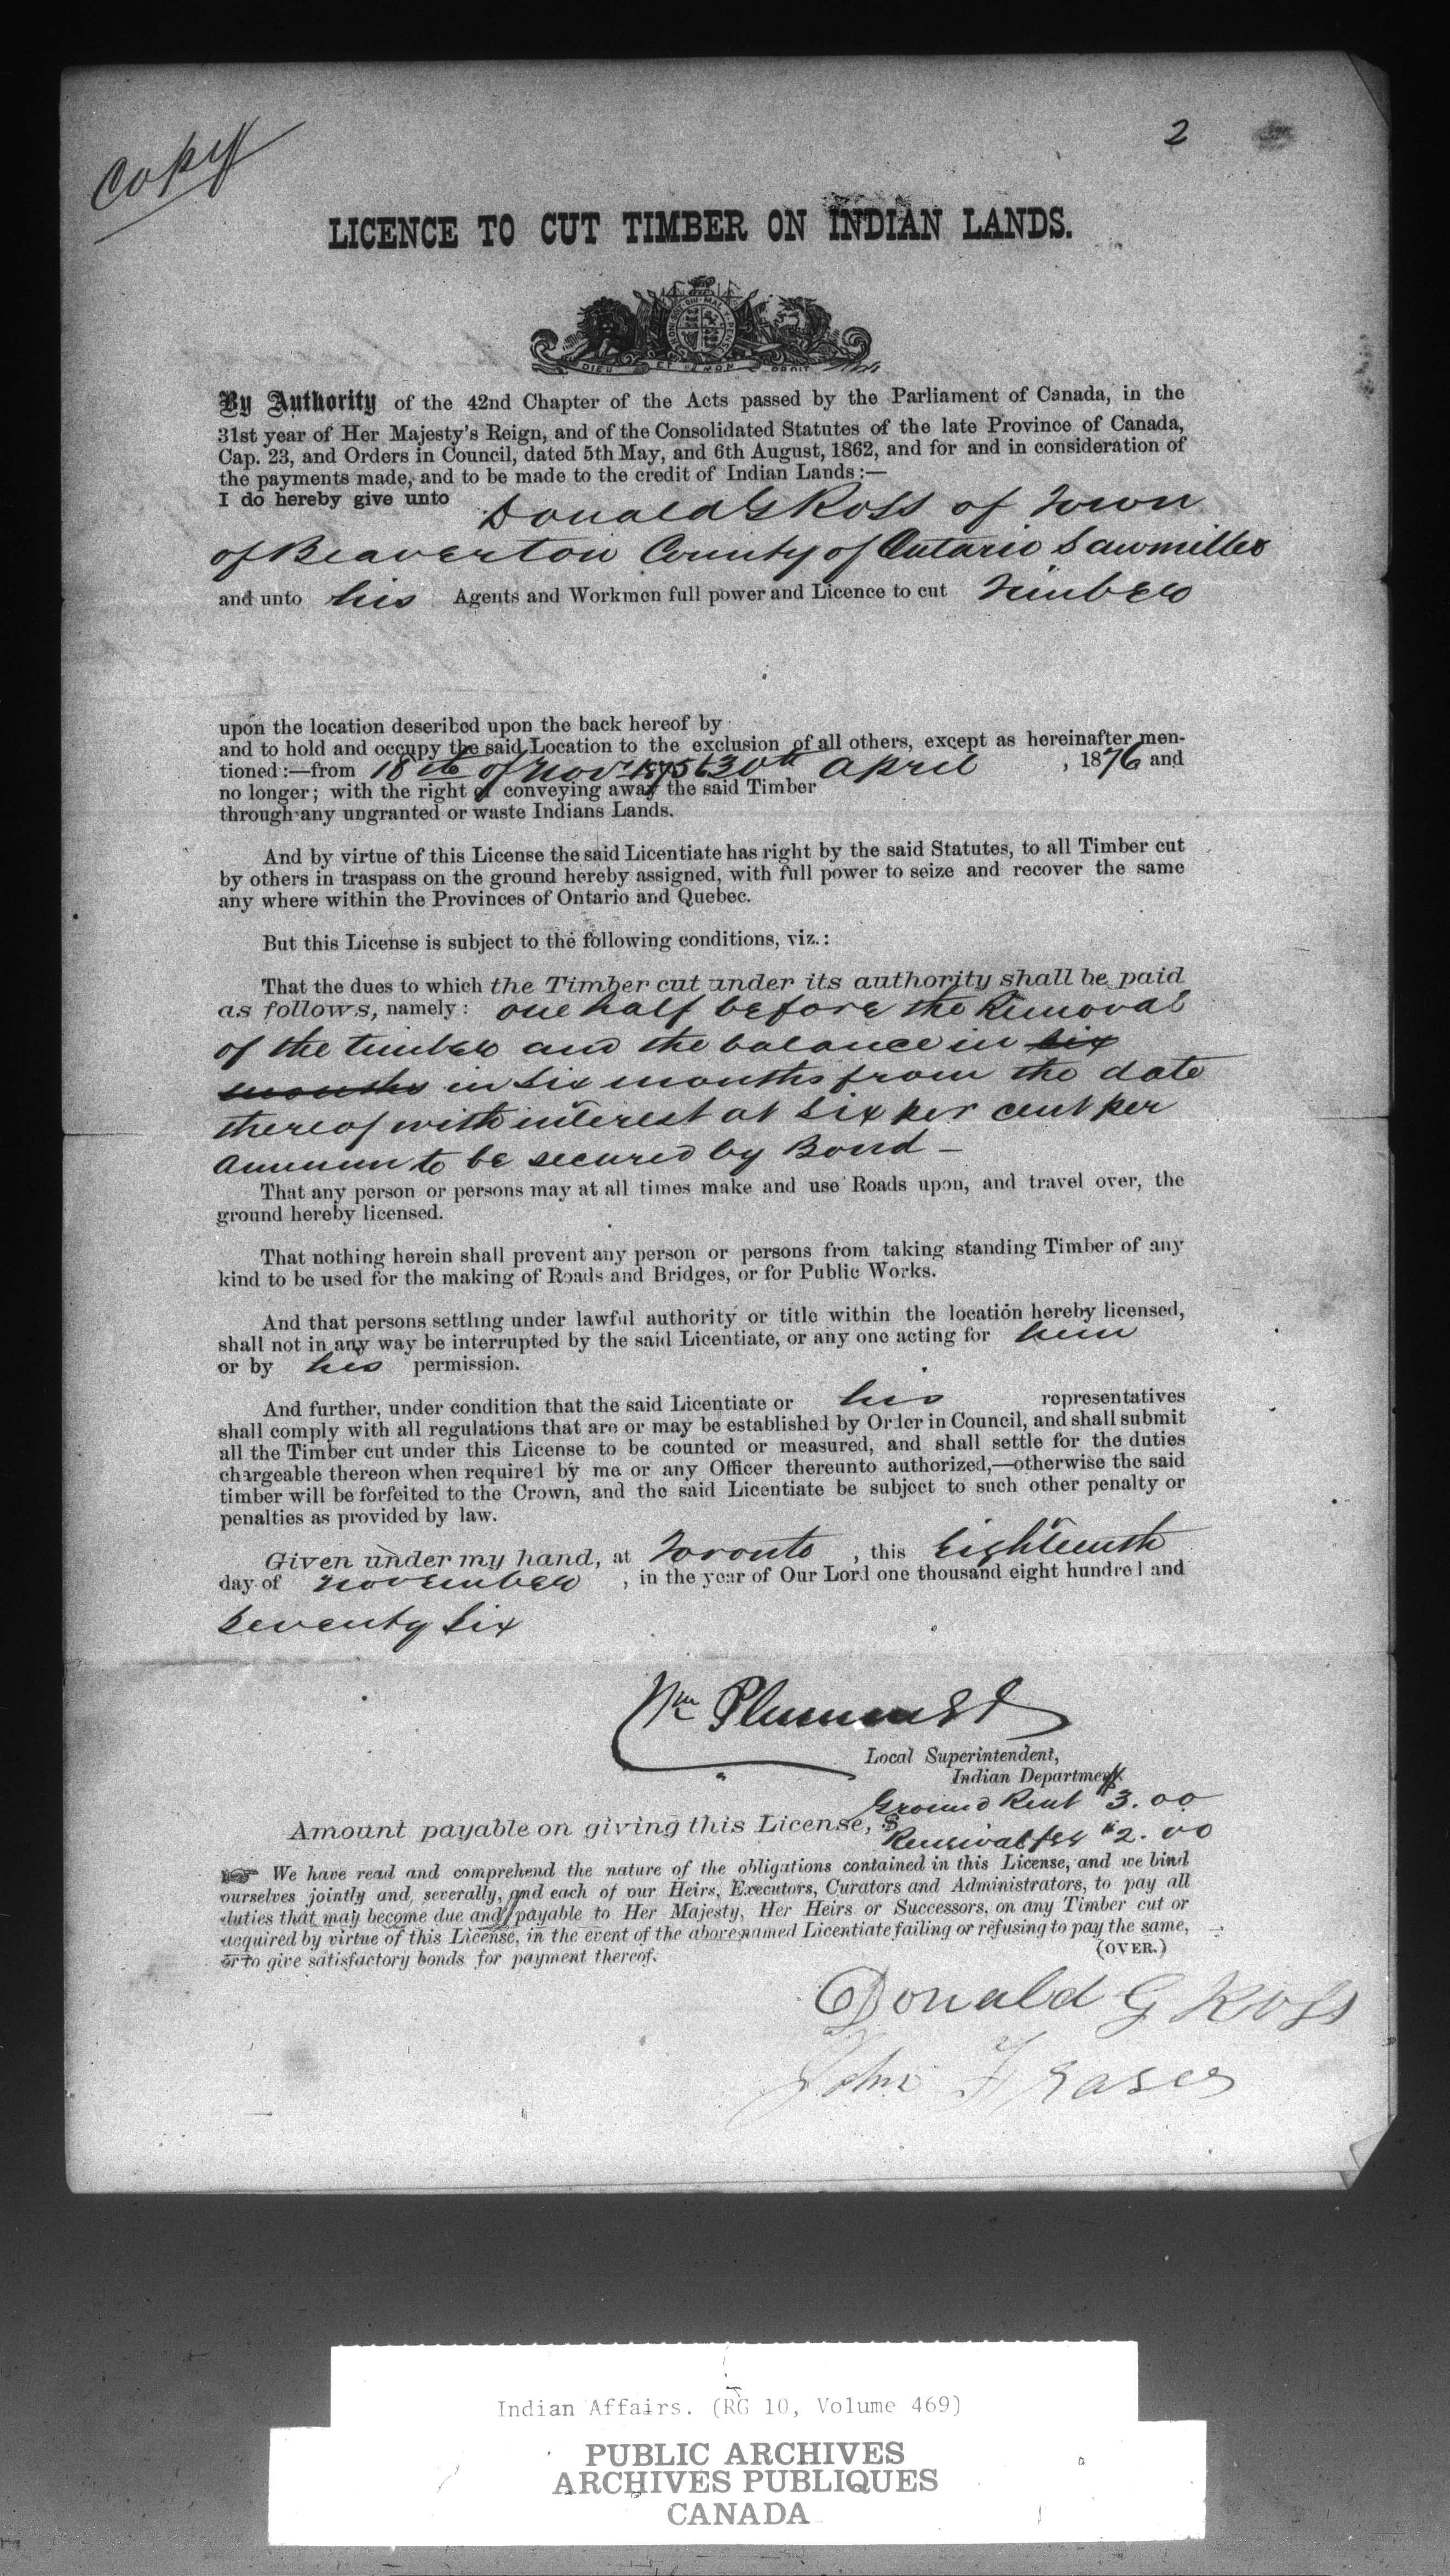 Copy
2
LICENCE TO CUT TIMBER ON INDIAN LANDS.
DIEU ET MON DROIT
By Authority of the 42nd Chapter of the Acts passed by the Parliament of Canada, in the
31st year of Her Majesty's Reign, and of the Consolidated Statutes of the late Province of Canada,
Cap. 23, and Orders in Council, dated 5th May, and 6th August, 1862, and for and in consideration of
the payments made, and to be made to the credit of Indian Lands:—
I do hereby give unto Donald G Ross of Town
of Beaverton County of Ontario Sawmiller
and unto his Agents and Workmen full power and Licence to cut Timber
upon the location described upon the back hereof by
and to hold and occupy the said Location to the exclusion of all others, except as hereinafter men-
tioned:—from 18th of Nov 1875 to 30th April , 1876 and
no longer; with the right of conveying away the said Timber
through any ungranted or waste Indians Lands.
And by virtue of this License the said Licentiate has right by the said Statutes, to all Timber cut
by others in traspass on the ground hereby assigned, with full power to seize and recover the same
any where within the Provinces of Ontario and Quebec.
But this License is subject to the following conditions, viz.:
That the dues to which the Timber cut under its authority shall be paid
as follows, namely: one half before the Removal
of the timber and the balance in six
months in six months from the date
thereof with interest at six per cent per
Annum to be secured by Bond —
That any person or persons may at all times make and use Roads upon, and travel over, the
ground hereby licensed.
That nothing herein shall prevent any person or persons from taking standing Timber of any
kind to be used for the making of Roads and Bridges, or for Public Works.
And that persons settling under lawful authority or title within the location hereby licensed,
shall not in any way be interrupted by the said Licentiate, or any one acting for him
or by his permission.
And further, under condition that the said Licentiate or his representatives
shall comply with all regulations that are or may be established by Order in Council, and shall submit
all the Timber cut under this License to be counted or measured, and shall settle for the duties
chargeable thereon when required by me or any Officer thereunto authorized,—otherwise the said
timber will be forfeited to the Crown, and the said Licentiate be subject to such other penalty or
penalties as provided by law.
Given under my hand, at Toronto , this Eighteenth
day of November , in the year of Our Lord one thousand eight hundred and
Seventy Six
Wm Plummer
Local Superintendent,
Indian Department.
Ground Rent $3.00
Amount payable on giving this License, $
Renewal fee $2.00
We have read and comprehend the nature of the obligations contained in this License, and we bind
ourselves jointly and severally, and each of our Heirs, Executors, Curators and Administrators, to pay all
duties that may become due and payable to Her Majesty, Her Heirs or Successors, on any Timber cut or
acquired by virtue of this License, in the event of the above named Licentiate failing or refusing to pay the same,
or to give satisfactory bonds for payment thereof.
(OVER.)
Donald G Ross
John Fraser
Indian Affairs. (RG 10, Volume 469)
PUBLIC ARCHIVES
ARCHIVES PUBLIQUES
CANADA